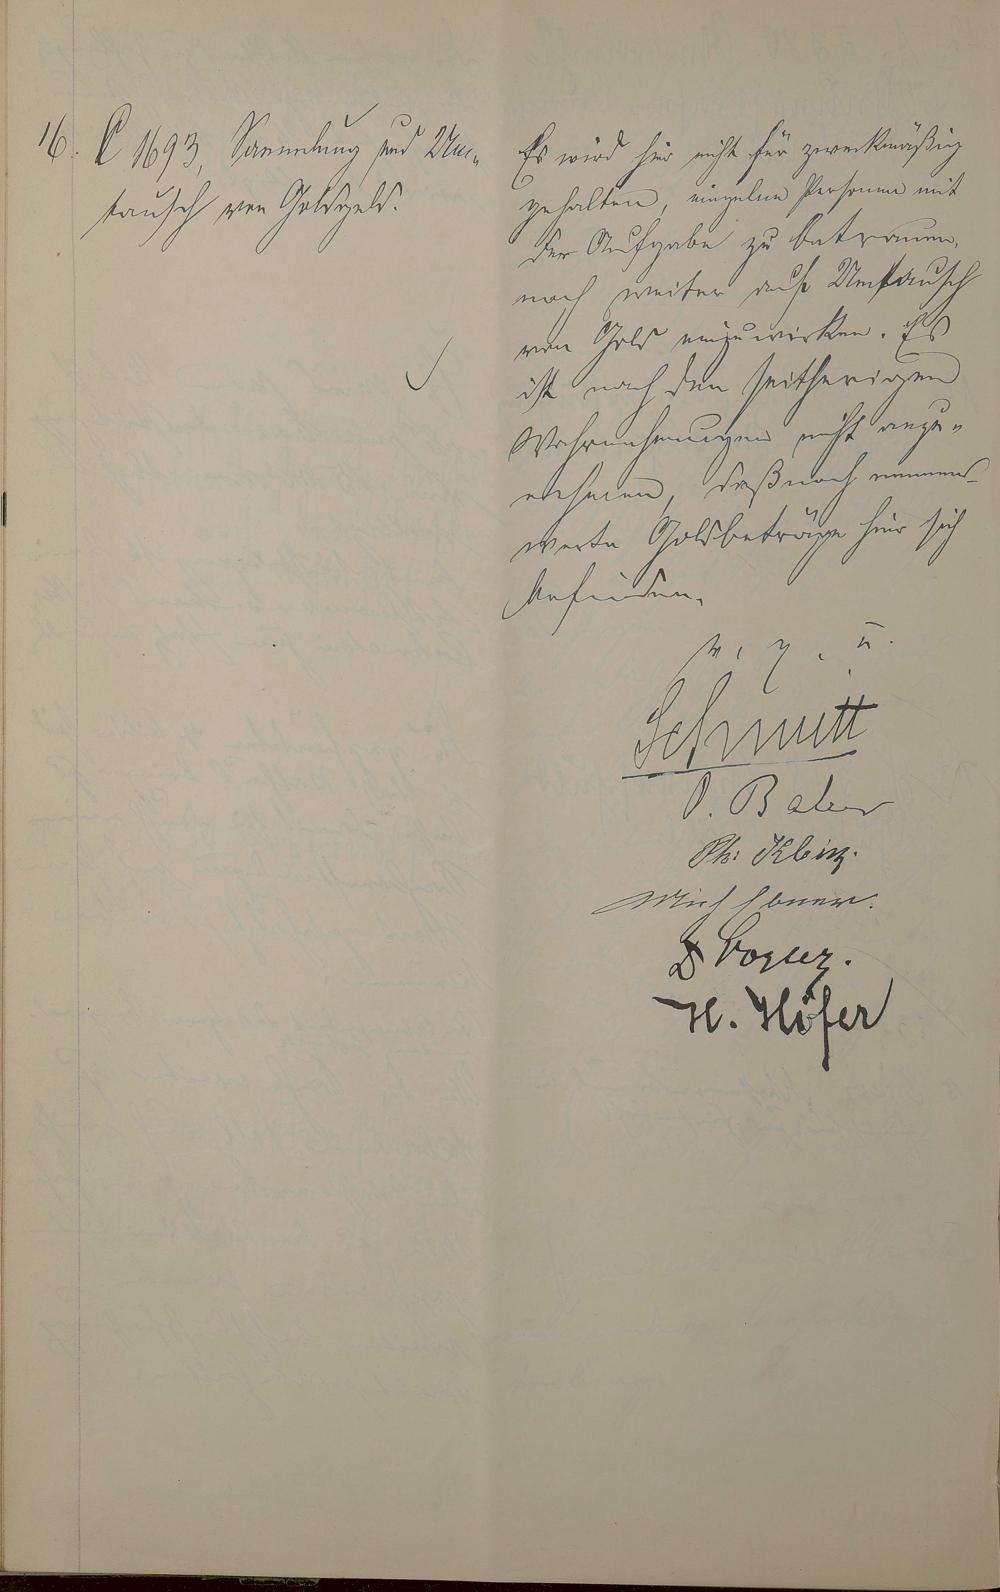 16. C 1693, Sammlung und Um-
tausch von Goldgeld.
Es wird hier nicht für zweckmäßig
gehalten, einzelne Personen mit
der Aufgabe zu betrauen,
noch weiter auf Umtausch
von Gold einzuwirken. Es
ist nach den seitherigen
Wahrnehmungen nicht anzu-
nehmen, daß noch nennens-
werte Goldbeträge hier sich
befinden.
v. g. u.
Schmitt
Ph: Klein
H. Höfer